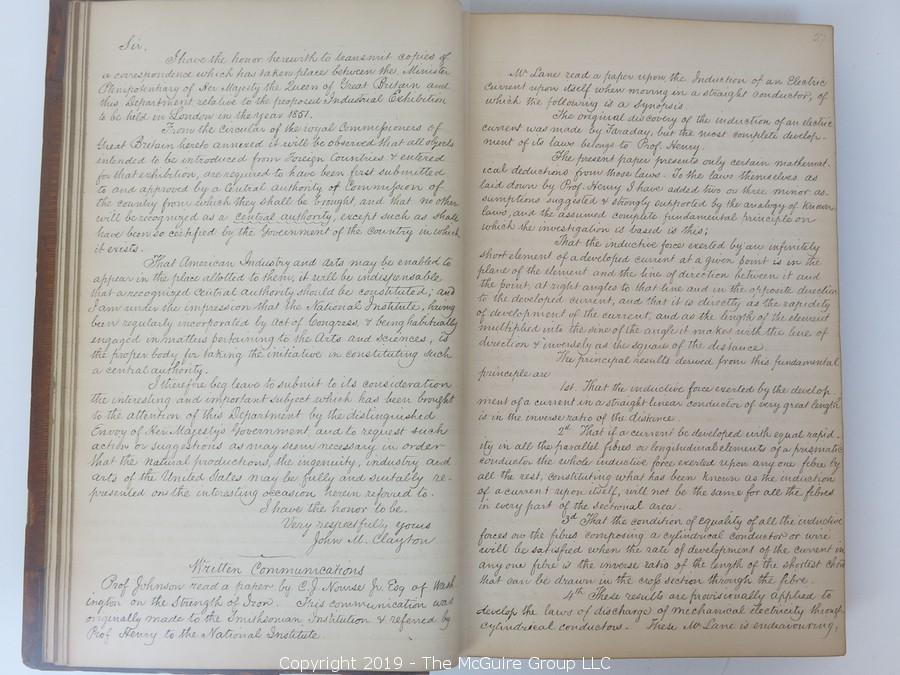 Sir,
I have the honor herewith to transmit copies of
a correspondence which has taken place between the Minister
Plenipotentiary of Her Majesty the Queen of Great Britain and
this Department relative to the proposed Industrial Exhibition
to be held in London in the year 1851.
From the circular of the royal Commissioners of
Great Britain hereto annexed it will be observed that all objects
intended to be introduced from Foreign Countries & entered
for that exhibition, are required to have been first submitted
to and approved by a Central authority of Commission of
the country from which they shall be brought and that no other
will be recognized as a central authority, except such as shall
have been so certified by the Government of the Country in which
it exists.
That American Industry and arts may be enabled to
appear in the place allotted to them, it will be indispensable
that a recognized Central Authority should be constituted; and
I am under the impression that the National Institute, having
been regularly incorporated by act of Congress, & being habitually
engaged in matters pertaining to the Arts and sciences, is
the proper body for taking the initiative in constituting such
a central authority.
I therefore beg leave to submit to its consideration
the interesting and important subject which has been brought
to the attention of this Department by the distinguished
Envoy of Her Majestys Government, and to request such
action or suggestions as may seem necessary in order
that the natural productions, the ingenuity, industry and
arts of the United States may be fully and suitably re-
presented on the intersting occasion herein referred to.
I have the honor to be.
Very respectfully yours
John M. Clayton
Written Communications
Prof Johnson read a paper by C. J. Nourse Jr. Esq of Wash
ington on the Strength of Iron. This communication was
originally made to the Smithsonian Institution & referred by
Prof Henry to the National Institute.
27
Mr Lane read a paper upon the Induction of an Electric
current upon itself when moving in a straight conductor, of
which the following is a synopsis.
The original discovery of the induction of an electric
current was made by Faraday, but the most complete develop-
ment of its laws belongs to Prof. Henry.
The present paper presents only certain mathemat-
ical deductions from those laws. To the laws themselves as
laid down by Prof. Henry I have added two or three minor as-
sumptions suggested & strongly supported by the analogy of known
laws, and the assumed complete fundamental principle on
which the investigation is based is this;
That the inductive force exerted by an infinitely
short element of a developed current at a given point is in the
plane of the element and the line of direction between it and
the point, at right angles to that line and in the opposite direction
to the developed current, and that it is directly as the rapidity
of development of the current, and as the length of the element
multiplied into the sine of the angle it makes with the line of
direction & inversely as the square of the distance.
The principal results derived from this fundamental
principle are
1st. That the inductive force exerted by the develop
ment of a current in a straight linear conductor of very great length
is in the inverse ratio of the distance.
2d. That if a current be developed with equal rapid-
ity in all the parallel fibres or longitudinal elements of a prismatic
conductor the whole inductive force exerted upon any one fibre by
all the rest, constituting what has been known as the induction
of a current upon itself, will not be the same for all the fibres
in every part of the sectional area.
3d That the condition of equality of all the inductive
forces on the fibres composing a cylindrical conductor or wire
will be satisfied when the rate of development of the current in
any one fibre is the inverse ratio of the length of the shortest chord
that can be drawn in the cross section through the fibre.
4th These results are provisionally applied to
develop the laws of discharge of mechanical electricity through
cylindrical conductors. These Mr Lane is endeavouring,
Copyright 2019 - The McGuire Group LLC